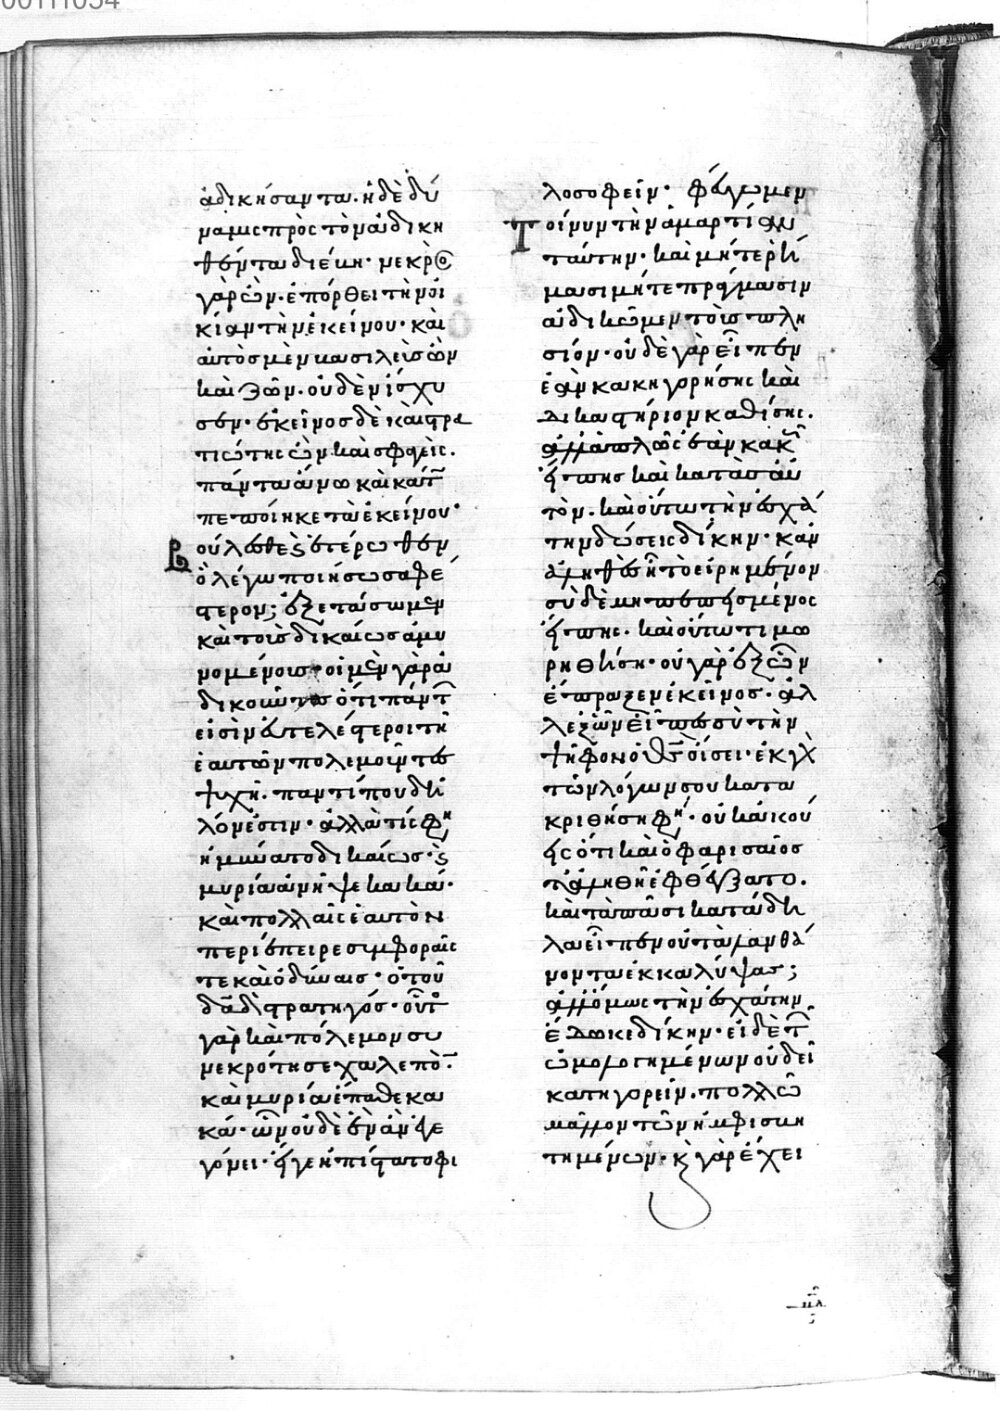 00111054
ἀδικήσαντα. ἡ δὲ δύ
ναμις πρὸς τὸν ἀδικη
θέντα διέβη. νεκρὸς
γὰρ ὢν. ἐπόρθει τὴν οἰ
κίαν τὴν ἐκείνου. καὶ
αὐτὸς μὲν βασιλεὺς ὢν
καὶ ζῶν. οὐδὲν ἴσχυ
σεν. ἐκεῖνος δὲ καὶ στρα
τιώτης ὢν καὶ σφαγεὶς.
πάντα ἄνω καὶ κάτω
πεποίηκε τὰ ἐκείνου.
Βούλεσθε ἑτέρωθεν
ὃ λέγω ποιήσω σαφέ
στερον; ἐξετάσωμεν
καὶ τοὺς δικαίως ἀμυ
νομένους. οἱ μὲν γὰρ ἀ
δικοῦντες ὅτι πάντων
εἰσὶν εὐτελέστεροι τῇ
ἑαυτῶν πολεμοῦντες
ψυχῇ. παντί που δῆ
λόν ἐστιν. ἀλλὰ τίς φη
ἠμύνατο δικαίως. καὶ
μυρία ἀνῆψε κακά.
καὶ πολλαῖς ἑαυτὸν
περιέπειρε συμφοραῖς
τε καὶ ὀδύναις. ὁ τοῦ
δαδ στρατηγός. οὗτος
γὰρ καὶ πόλεμον συ
νεκρότησε χαλεπὸν.
καὶ μυρία ἔπαθε κα
κά. ὧν οὐδὲ ἓν ἂν ἐγε
γόνει. εἴγε ἠπίστατο φι
λοσοφεῖν. φύγωμεν
Τοίνυν τὴν ἁμαρτίαν
ταύτην. καὶ μήτε ῥή
μασι μήτε πράγμασιν
ἀδικῶμεν τοὺς πλη
σίον. οὐδὲ γὰρ εἶπεν
ἐὰν κακηγορήσῃς καὶ
δικαστήριον καθίσῃς.
ἀλλ' ἁπλῶς ἐὰν κακῶς
εἴπῃς καὶ κατὰ σαυ
τὸν. καὶ οὕτω τὴν ἐσχά
την δώσεις δίκην. κἂν
ἀληθὲς ἦ τὸ εἰρημένον
σὺ δὲ μὴ πεπεισμένος
εἴπῃς. καὶ οὕτω τιμω
ρηθήσῃ. οὐ γὰρ ἐξ ὧν
ἔπραξεν ἐκεῖνος. ἀλ
λ' ἐξ ὧν εἶπες σὺ τὴν
ψῆφον ὁ θς οἴσει. ἐκ γὰρ
τῶν λόγων σου κατα
κριθήσῃ φη. οὐκ ἀκού
εις ὅτι καὶ ὁ φαρισαῖος
τἀληθῆ ἐφθέγξατο.
καὶ τὰ πᾶσι κατάδη
λα εἶπεν οὐ τὰ λανθά
νοντα ἐκκαλύψας;
ἀλλ' ὅμως τὴν ἐσχάτην
ἔδωκε δίκην. εἰ δὲ τῶν
ὡμολογημένων οὐ δεῖ
κατηγορεῖν. πολλῷ
μᾶλλον τῶν ἠμφισβη
τημένων. καὶ γὰρ ἔχει